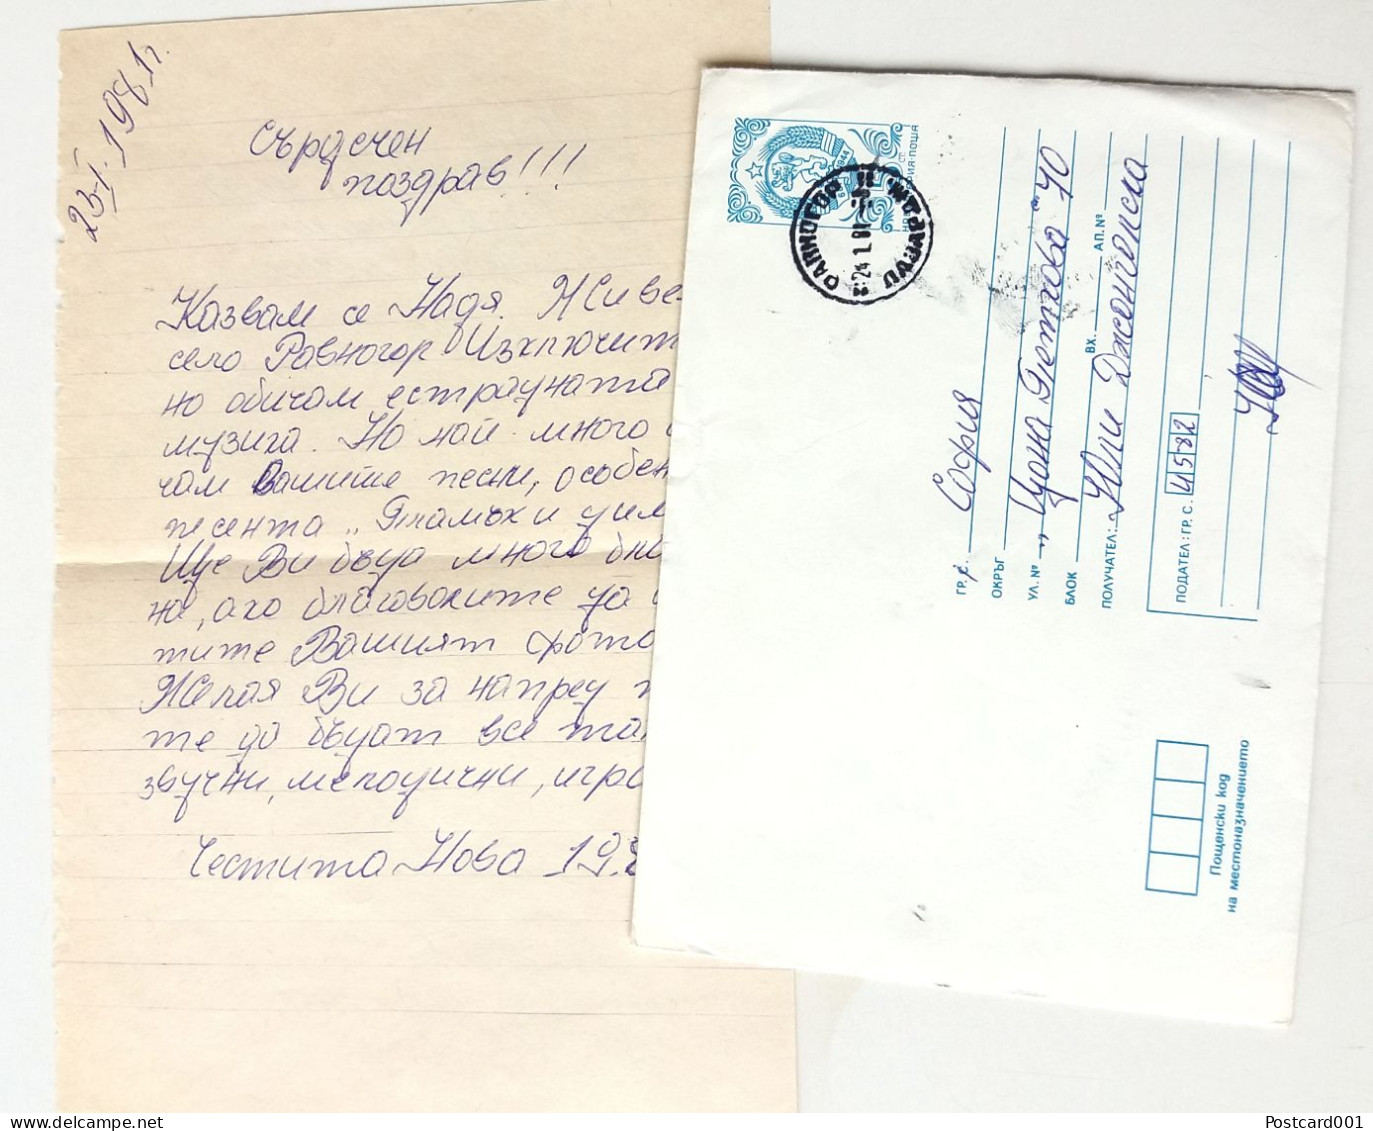 23-I-1981г.
Сърдечен
поздрав!!!
Казвам се Надя. Живе
село Равногор Изключит
но обичам естрадната
музика. Но най много
чам Вашите песни, особен
песента „Пламък и
Ще Ви бъда много бла
на, ако благоволите да
тите Вашият фото
Желая Ви за напред
те да бъдат все так
звучни, мелодични, игр
Честита Нова 19.8
НРБ 1944
РАВНОГОР
24.1.81
ПАЗАРДЖ.
ГР. с. София
ОКРЪГ
УЛ. № „Цона Петкова“ 40
БЛОК ВХ. АП. №
ПОЛУЧАТЕЛ: Юли Дженгенска
ПОДАТЕЛ: ГР. С. 4582
Пощенски код
на местоназначението
Postcard001